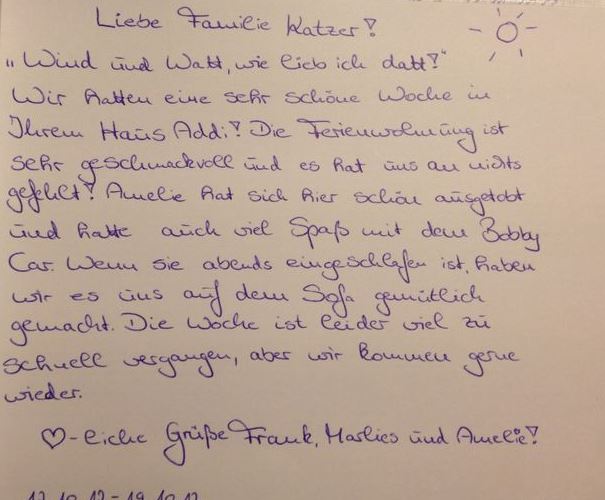 Liebe Familie Katzer!
„Wind und Watt, wie lieb ich datt!"
Wir hatten eine sehr schöne Woche in
Ihrem Haus Addi! Die Ferienwohnung ist
sehr geschmackvoll und es hat uns an nichts
gefehlt! Amelie hat sich hier schön ausgetobt
und hatte auch viel Spaß mit dem Bobby
Car. Wenn sie abends eingeschlafen ist, haben
wir es uns auf dem Sofa gemütlich
gemacht. Die Woche ist leider viel zu
schnell vergangen, aber wir kommen gerne
wieder.
♡-liche Grüße Frank, Marlies und Amelie!